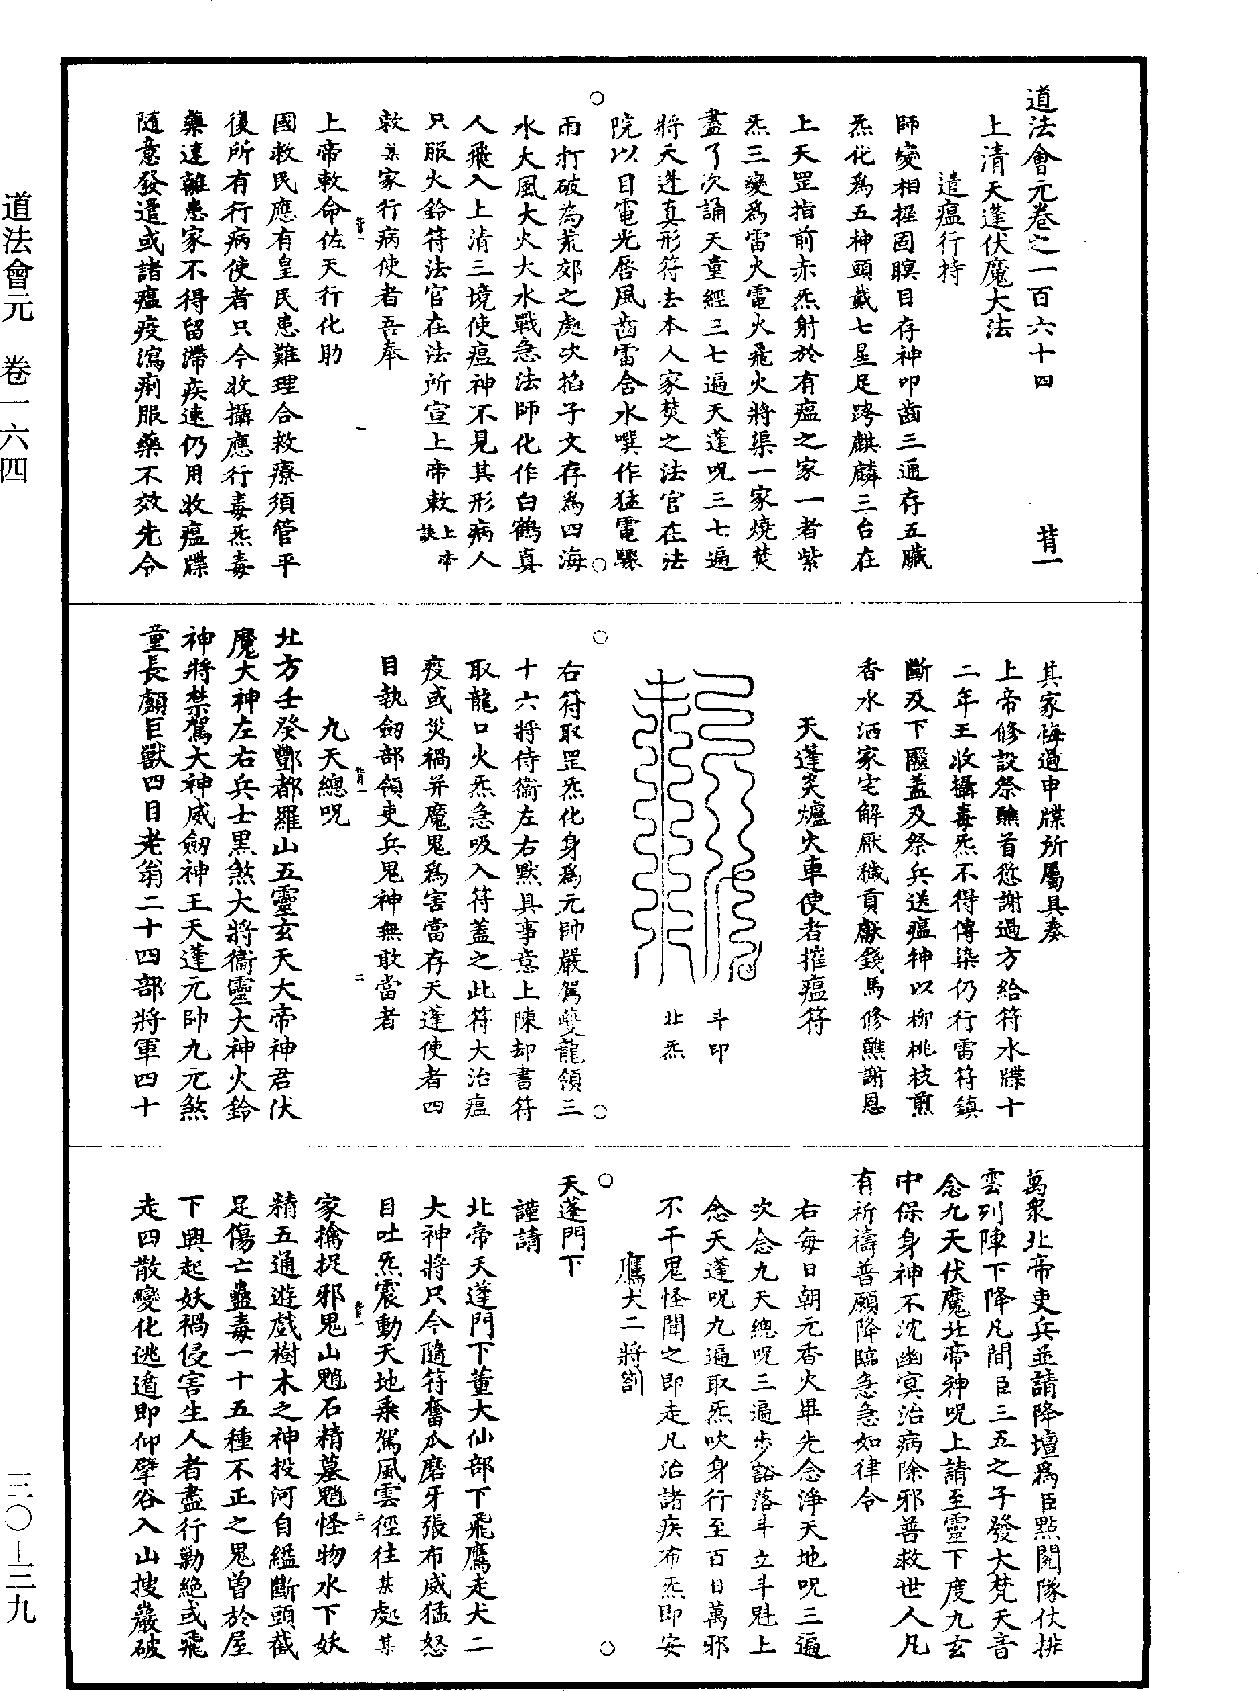 道法會元卷之一百六十四 背一
上清天蓬伏魔大法
遣瘟行持
師變相握固瞑目存神叩齒三通存五臟
炁化為五神頭戴七星足踏麒麟三台在
上天罡指前赤炁射於有瘟之家一者紫
炁三變為雷火電火飛火將渠一家燒焚
盡了次誦天童經三七遍天蓬呪三七遍
將天蓬真形符去本人家焚之法官在法
院以目電光唇風齒雷含水噀作猛電驟
雨打破為荒郊之處次掐子文存為四海
水大風大火大水戰急法師化作白鶴真
人飛入上清三境使瘟神不見其形病人
只服火鈴符法官在法所宣上帝敕上帝
敕某家行病使者吾奉
上帝敕命佐天行化助
國救民應有皇民患難理合救療須管平
復所有行病使者只今收攝應行毒炁毒
藥速離患家不得留滯疾速仍用收瘟牒
隨意發遣或諸瘟疫瀉痢服藥不效先令
其家悔過申牒所屬具奏
上帝修設祭醮首愆謝過方給符水牒十
二年王收攝毒炁不得傳染仍行雷符鎮
斷及下匾蓋及祭兵送瘟神以柳桃枝煎
香水洒家宅解厭穢貢獻錢馬修醮謝恩
天蓬炎爐火車使者摧瘟符
斗印
北炁
右符取罡炁化身為元帥嚴駕雙龍領三
十六將侍衛左右默具事意上陳却書符
取龍口火炁急吸入符蓋之此符大治瘟
疫或災禍并魔鬼為害當存天蓬使者四
目執劍部領吏兵鬼神無敢當者
九天總呪
北方壬癸酆都羅山五靈玄天大帝神君伏
魔大神左右兵士黑煞大將衛靈大神火鈴
神將禁駕大神威劍神王天蓬元帥九元煞
童長顱巨獸四目老翁二十四部將軍四十
萬眾北帝吏兵並請降壇為臣點閱隊仗排
雲列陣下降凡間臣三五之子發大梵天音
念九天伏魔北帝神呪上請至靈下度九玄
中保身神不沈幽冥治病除邪普救世人凡
有祈禱普願降臨急急如律令
右每日朝元香火畢先念淨天地呪三遍
次念九天總呪三遍步豁落斗立斗魁上
念天蓬呪九遍取炁吹身行至百日萬邪
不干鬼怪聞之即走凡治諸疾布炁即安
鷹犬二將劄
天蓬門下
謹請
北帝天蓬門下董大仙部下飛鷹走犬二
大神將只今隨符奮爪磨牙張布威猛怒
目吐炁震動天地乘駕風雲徑往某處某
家擒捉邪鬼山魈石精墓魈怪物水下妖
精五通遊戲樹木之神投河自縊斷頭截
足傷亡蠱毒一十五種不正之鬼曾於屋
下興起妖禍侵害生人者盡行勦絕或飛
走四散變化逃遁即仰擘谷入山搜巖破
道法會元 卷一六四
三〇—三九